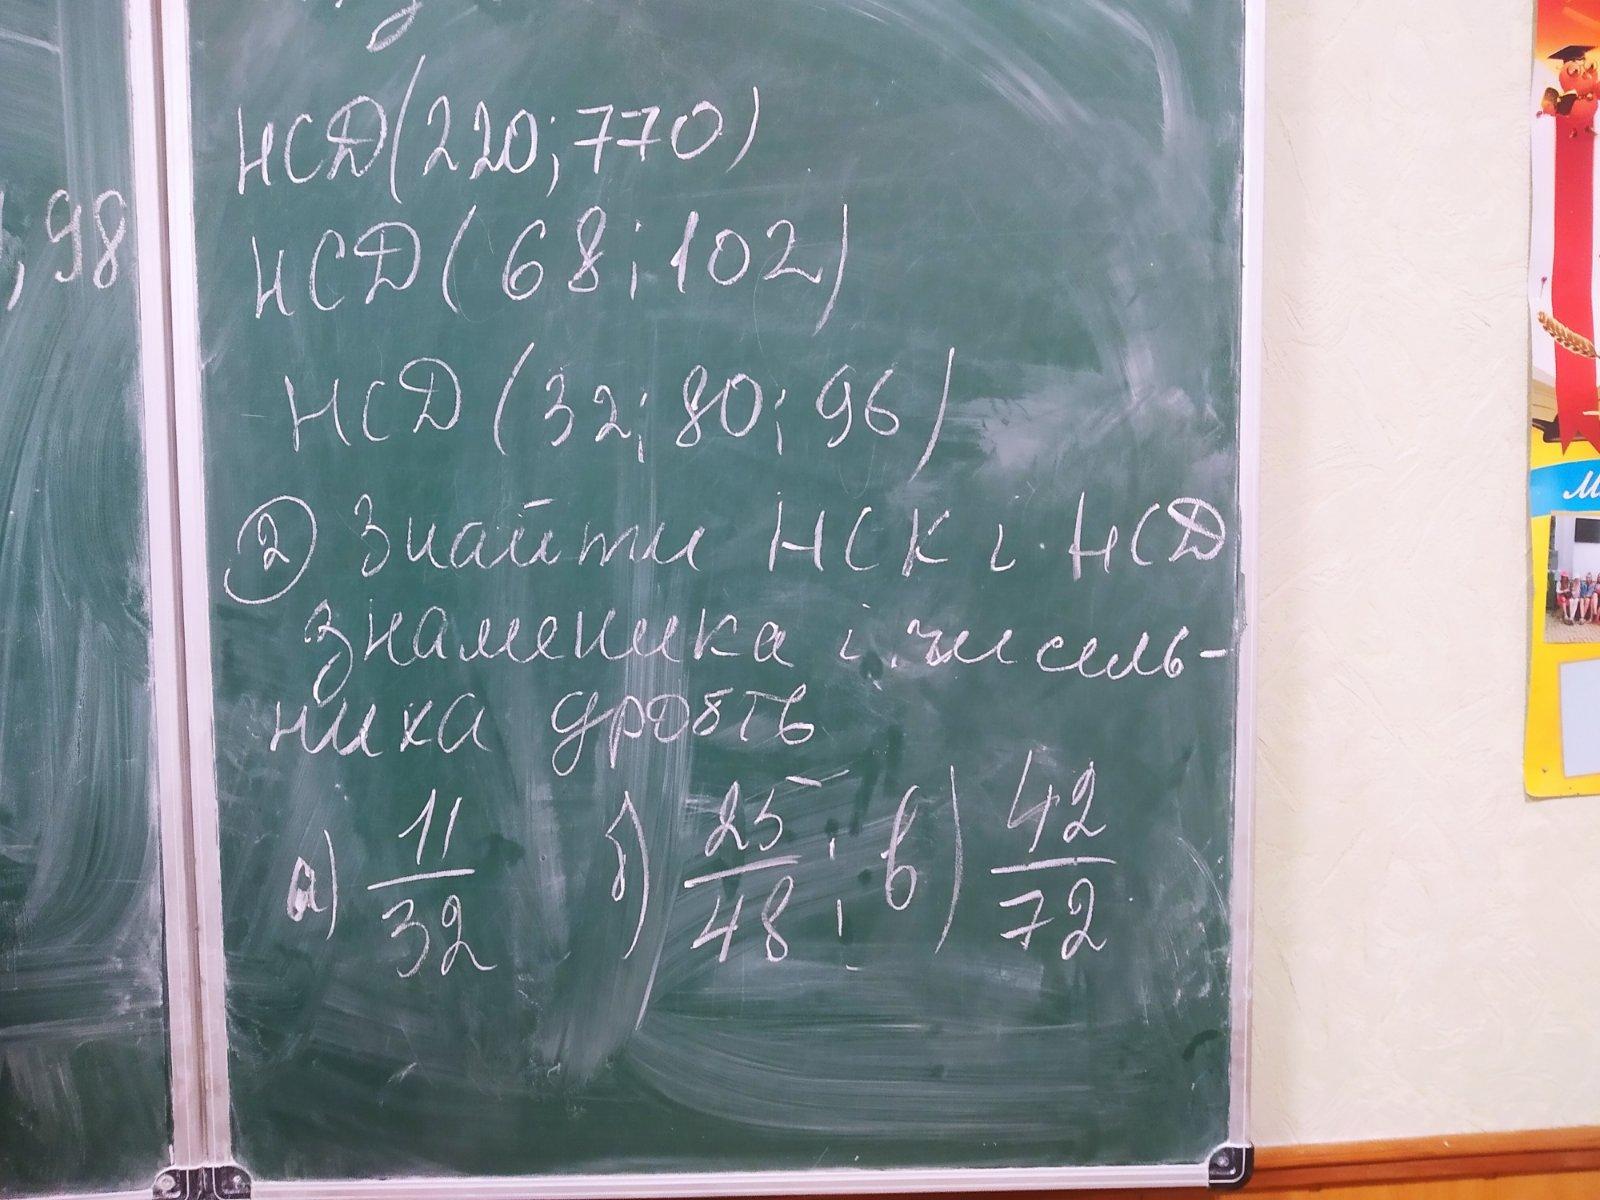 , 98
НСД(220;770)
НСД(68;102)
НСД(32;80;96)
② Знайти НСК і НСД
знаменика і чисель-
ника дробть
а) 11/32 б) 25/48; в) 42/72